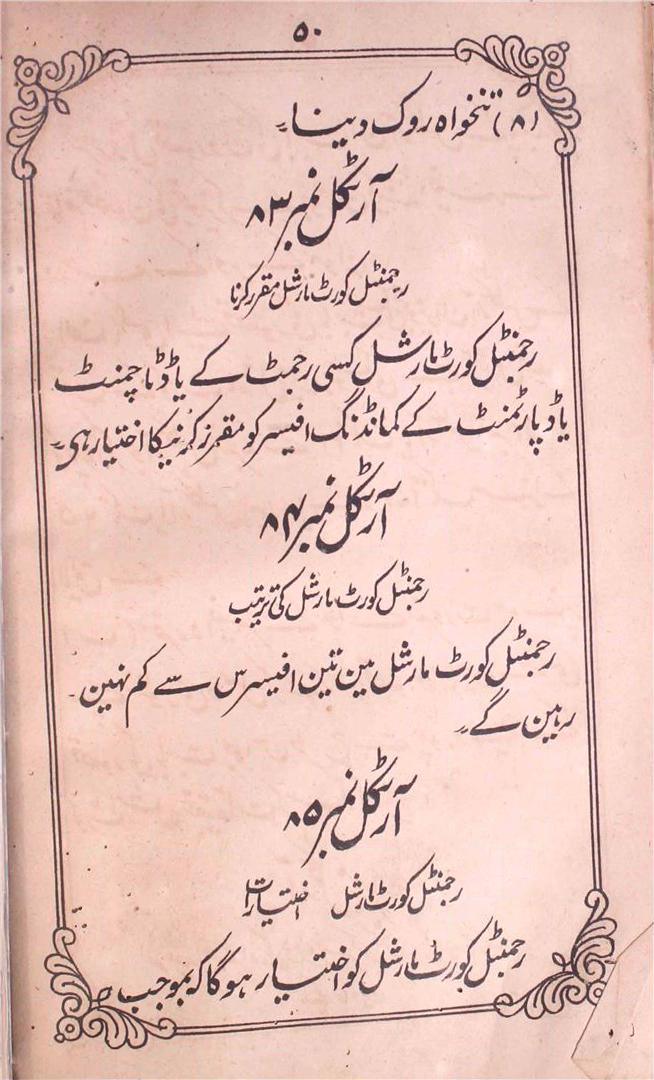 ۵۰
(۸) تنخواہ روک دینا۔
آرٹکل نمبر ۸۳
رجمنٹل کورٹ مارشل مقرر کرنا
رجمنٹل کورٹ مارشل کسی رجمنٹ کے یا ڈٹاچمنٹ
یا ڈیپارٹمنٹ کے کمانڈنگ افیسر کو مقرر کرنیکا اختیار ہی۔
آرٹکل نمبر ۸۴
رجمنٹل کورٹ مارشل کی ترتیب
رجمنٹل کورٹ مارشل مین تین افیسرس سے کم نہین
رہین گے۔
آرٹکل نمبر ۸۵
رجمنٹل کورٹ مارشل اختیارات
رجمنٹل کورٹ مارشل کو اختیار ہوگا کہ بموجب